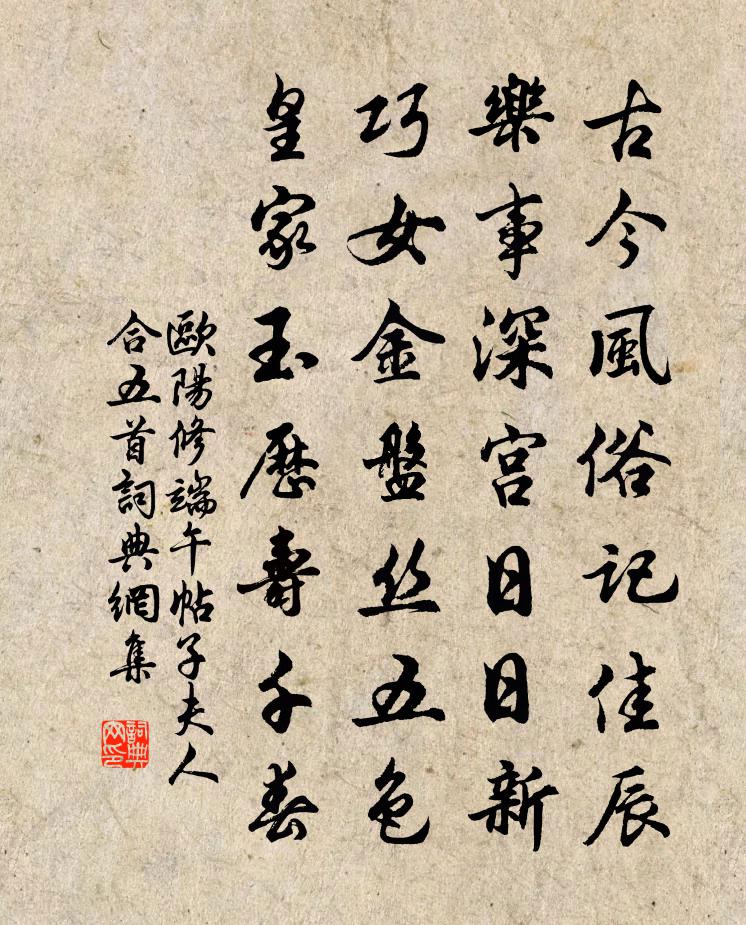 古今風俗記佳辰
樂事深宮日日新
巧女金盤丝五色
皇家玉歷壽千春
歐陽修端午帖子夫人
合五首詞典網集
詞典
网印